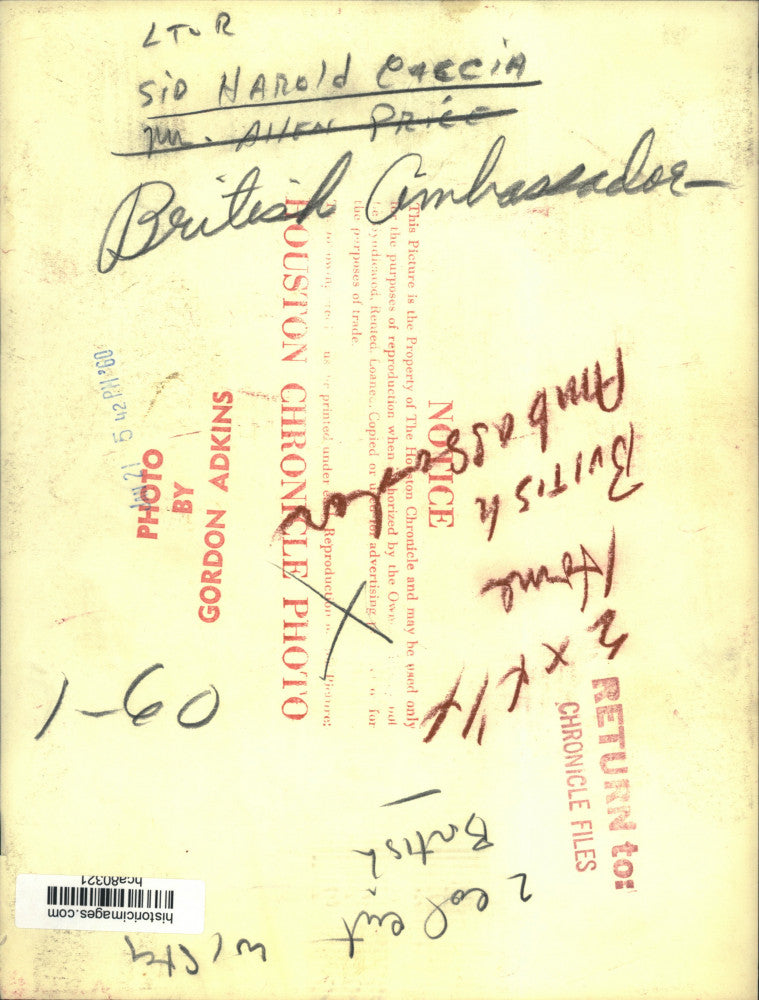 L TO R
SiD HAROLD CACCIA
Mr. AllEN PRICE
British Ambassador
HOUSTON CHRONICLE PHOTO
NOTICE
This Picture is the Property of The Houston Chronicle and may be used only
for the purposes of reproduction when authorized by the Owner
Syndicated, Rented, Loaned, Copied or used for advertising
for
the purposes of trade.
printed under
Reproduction
Picture:
Jan 21 5 42 PM '60
PHOTO
BY
GORDON ADKINS
British
Ambassador
Home
2 x x 14
1-60
RETURN to:
CHRONICLE FILES
2 col cut
British
w/ sty
historicimages.com
hca80321